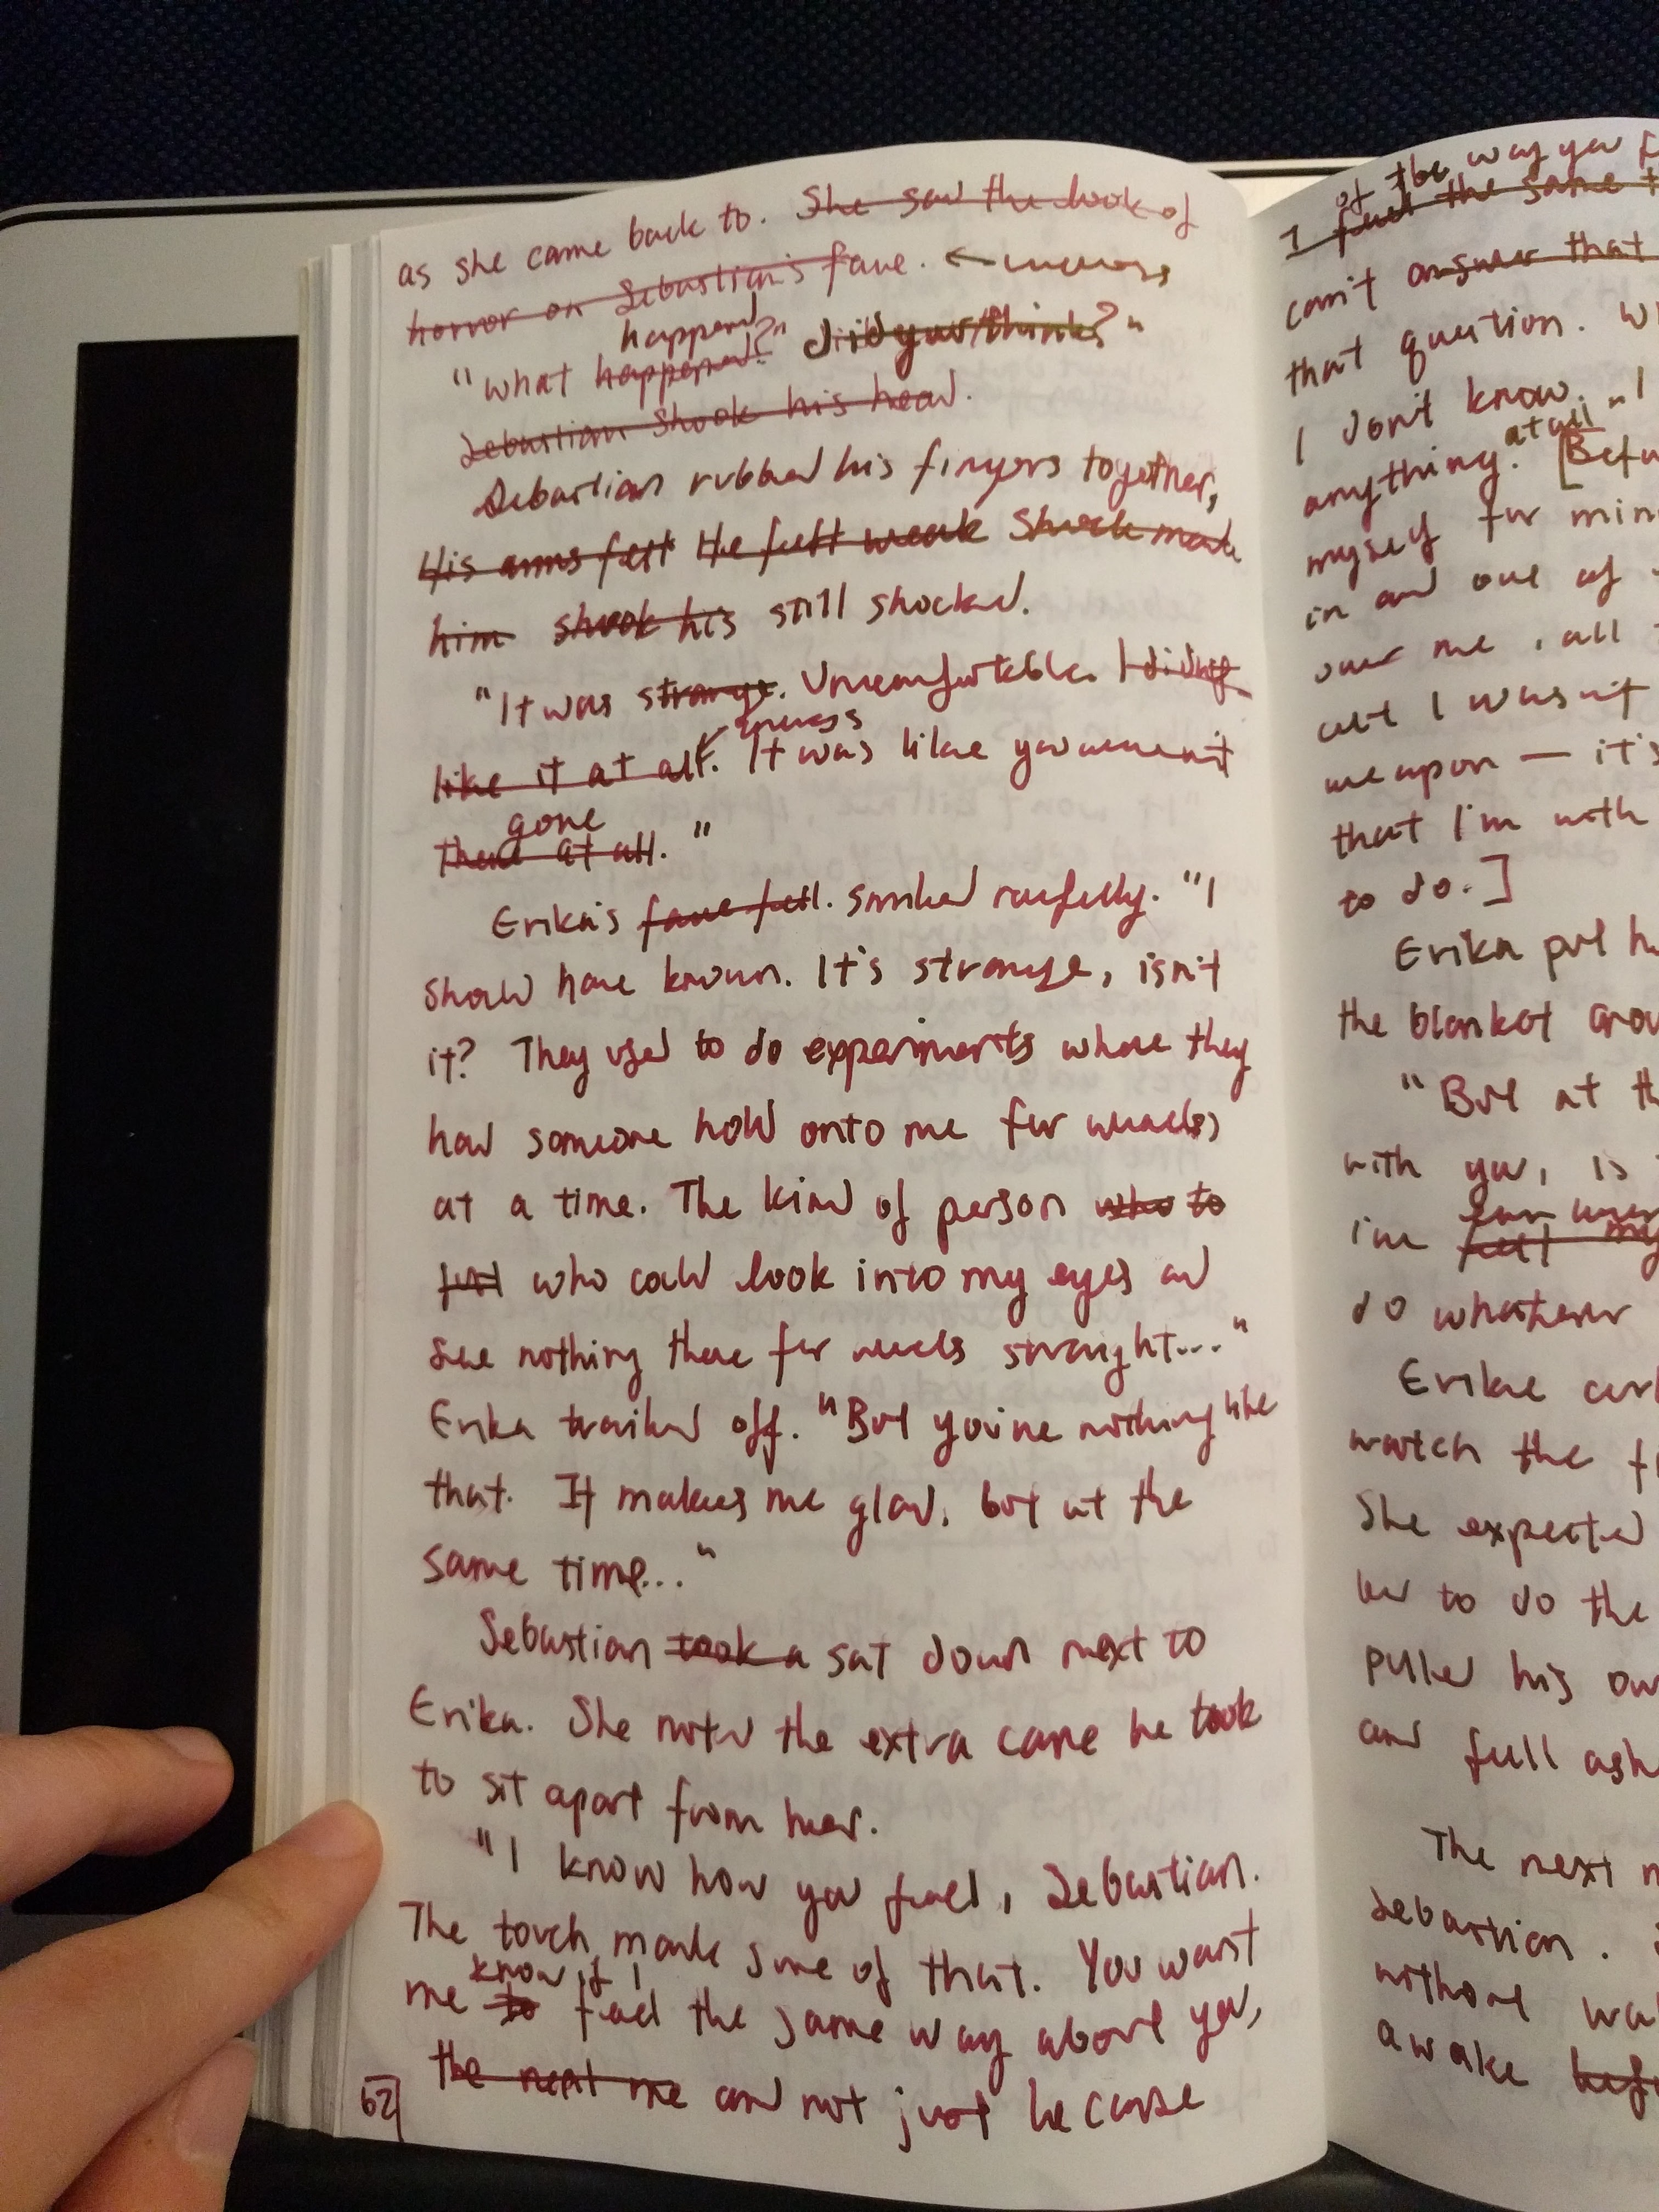 as she came back to. She saw the look of
horror on Sebastian's face. ←
happened
"what happened?" did you think?"
Sebastian shook his head.
Sebastian rubbed his fingers together,
His arms felt He felt weak Shock made
him shook his still shocked.
"It was strange. Uncomfortable. I didn't
like it at all. It was like you weren't
gone
there at all."
Erika's face fell. smiled ruefully. "I
should have known. It's strange, isn't
it? They used to do experiments where they
had someone hold onto me for weeks
at a time. The kind of person who to
who could look into my eyes and
see nothing there for weeks straight..."
Erika trailed off. "But you're nothing like
that. It makes me glad, but at the
same time..."
Sebastian took a sat down next to
Erika. She noted the extra care he took
to sit apart from her.
"I know how you feel, Sebastian.
The touch made sure of that. You want
know if I
me to feel the same way about you,
the next me and not just because
62
of the way you f
I feel the same t
can't answer that
that question. W
I don't know. I
at all"
anything." [Befo
myself for min
in and out of
over me, all
cut I wasn't
weapon — it's
that I'm with
to do.]
Erika put h
the blanket arou
"But at th
with you, is
I've
feel my
do whatever
Erika curl
watch the f
She expected
her to do the
pulled his ow
and full ash
The next m
Sebastian.
without wa
awake bef